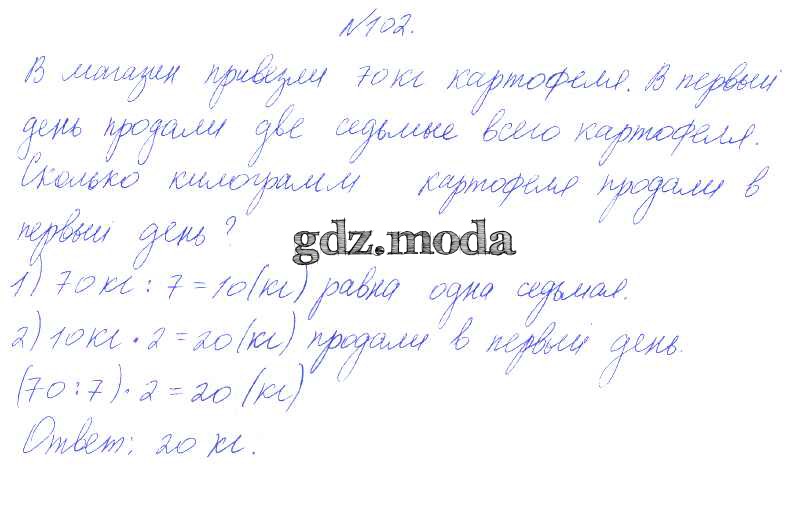 №102.
В магазин привезли 70 кг картофеля. В первый
день продали две седьмые всего картофеля.
Сколько килограмм картофеля продали в
первый день?
gdz.moda
1) 70 кг : 7 = 10 (кг) равна одна седьмая.
2) 10 кг • 2 = 20 (кг) продали в первый день.
(70 : 7) • 2 = 20 (кг)
Ответ: 20 кг.